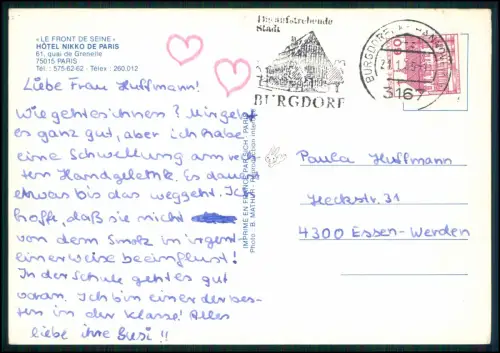 «LE FRONT DE SEINE»
HÔTEL NIKKO DE PARIS
61, quai de Grenelle
75015 PARIS
Tél.: 575-62-62 - Télex: 260.012
Liebe Frau Huffmann!
Wie geht es ihnen? Mir geht
es ganz gut, aber ich habe
eine Schwellung am rech-
ten Handgelenk. Es dauert
etwas bis das weggeht. Ich
hoffe, daß sie mich
von dem Smolz in irgent
einerweise beeinflust!
In der Schule geht es gut
voran. Ich bin einer der bes-
ten in der Klasse! Alles
liebe ihre Susi!!
IMPRIMÉ EN FRANCE PAR
Photo: B. MATHUR - Reproduction interdite
Die aufstrebende
Stadt
BURGDORF
BURGDORF
3167
60
Paula Huffmann
Heckstr. 31
4300 Essen-Werden